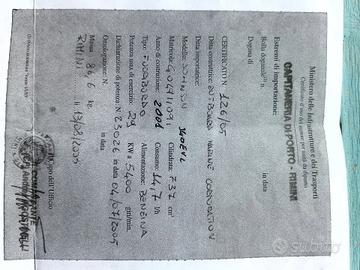 Ministero delle Infrastrutture e dei Trasporti
CAPITANERIA DI PORTO - RIMINI
Estremi di importazione:
Bolla doganale n. in data
Dogana di
CERTIFICATO N. 126/05
Ditta costruttrice OUTBOARD MARINE CORPORATION
Ditta importatrice:
Modello: JOHNSON J40EVL
Matricola: G04911091 Cilindrata: 737 cm³
Anno di costruzione: 2001 Consumo: 14,7 l/h
Tipo: FUORIBORDO Alimentazione: BENZINA
Potenza max. di esercizio: 29 KW a 5400 giri/min.
Dichiarazione di potenza N. 23026 in data 04/07/2005
Omologazione: N. in data
Massa 86,6 kg.
RIMINI li 13/08/2005
Il Capo dell'Ufficio
IL COMANDANTE
Subito